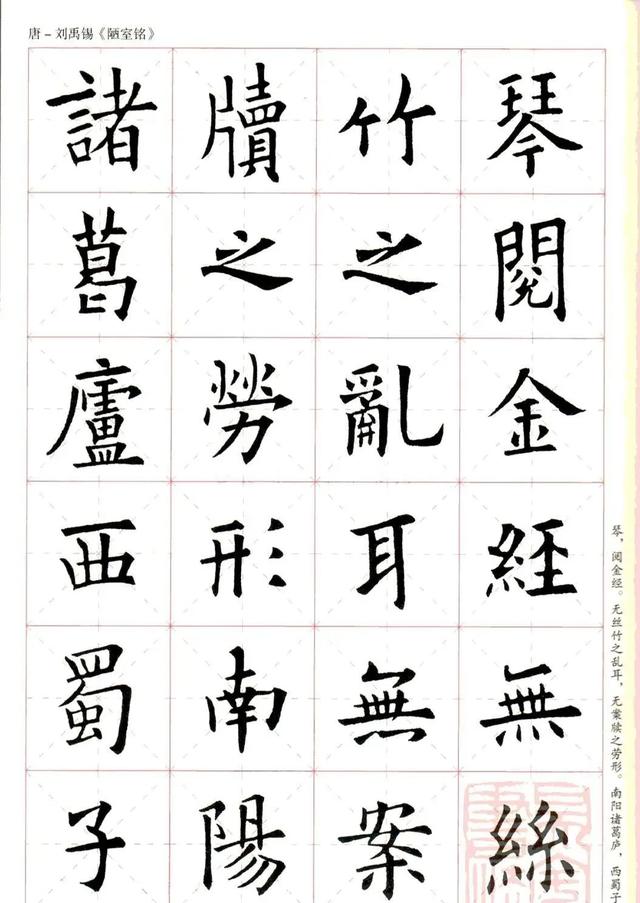 唐－刘禹锡《陋室铭》
琴閱金經無絲
竹之亂耳無案
牘之勞形南陽
諸葛廬西蜀子
琴，阅金经。无丝竹之乱耳，无案牍之劳形。南阳诸葛庐，西蜀子